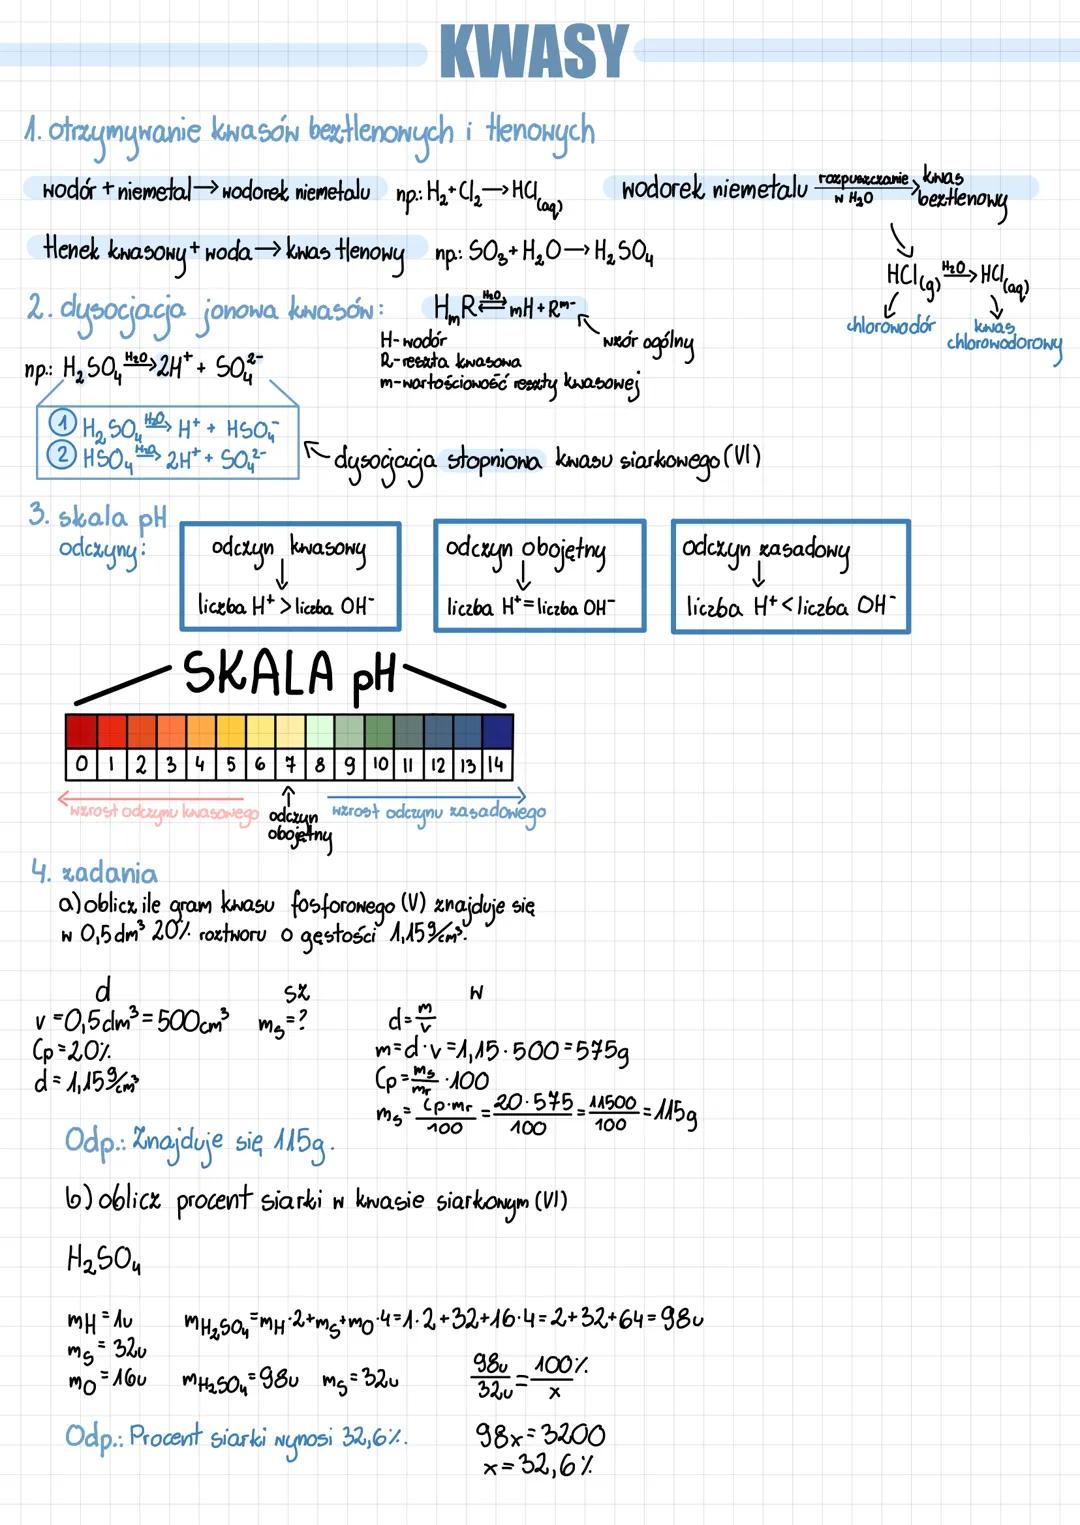 KWASY
1. otrzymywanie kwasów beztlenowych i tlenowych
wodór + niemetal → wodorek niemetalu np.: H₂+Cl₂ → HCl(aq)
wodorek niemetalu rozpuszczanie w H₂O → kwas beztlenowy
tlenek kwasowy + woda → kwas tlenowy np.: SO₃ + H₂O → H₂SO₄
HCl(g) H₂O → HCl(aq)
chlorowodór kwas chlorowodorowy
2. dysocjacja jonowa kwasów: HₘR H₂O ⇄ mH + Rᵐ⁻
wzór ogólny
H-wodór
R-reszta kwasowa
m-wartościowość reszty kwasowej
np.: H₂SO₄ H₂O → 2H⁺ + SO₄²⁻
1 H₂SO₄ H₂O → H⁺ + HSO₄⁻
2 HSO₄ H₂O → 2H⁺ + SO₄²⁻
dysocjacja stopniowa kwasu siarkowego (VI)
3. skala pH
odczyny:
odczyn kwasowy
liczba H⁺ > liczba OH⁻
odczyn obojętny
liczba H⁺ = liczba OH⁻
odczyn zasadowy
liczba H⁺ < liczba OH⁻
SKALA pH
0 1 2 3 4 5 6 7 8 9 10 11 12 13 14
wzrost odczynu kwasowego
odczyn obojętny
wzrost odczynu zasadowego
4. zadania
a) oblicz ile gram kwasu fosforowego (V) znajduje się
w 0,5 dm³ 20% roztworu o gęstości 1,15 g/cm³.
d sz w
v = 0,5 dm³ = 500 cm³ mₛ = ? d = m/v
Cp = 20% m = d · v = 1,15 · 500 = 575g
d = 1,15 g/cm³ Cp = mₛ/mr · 100
mₛ = Cp·mr/100 = 20·575/100 = 11500/100 = 115g
Odp.: Znajduje się 115g.
b) oblicz procent siarki w kwasie siarkowym (VI)
H₂SO₄
mH = 1u mH₂SO₄ = mH·2+mS+mO·4 = 1·2+32+16·4 = 2+32+64 = 98u
mS = 32u
mO = 16u mH₂SO₄ = 98u mS = 32u 98u/32u = 100%/x
98x = 3200
x = 32,6%
Odp.: Procent siarki wynosi 32,6%.